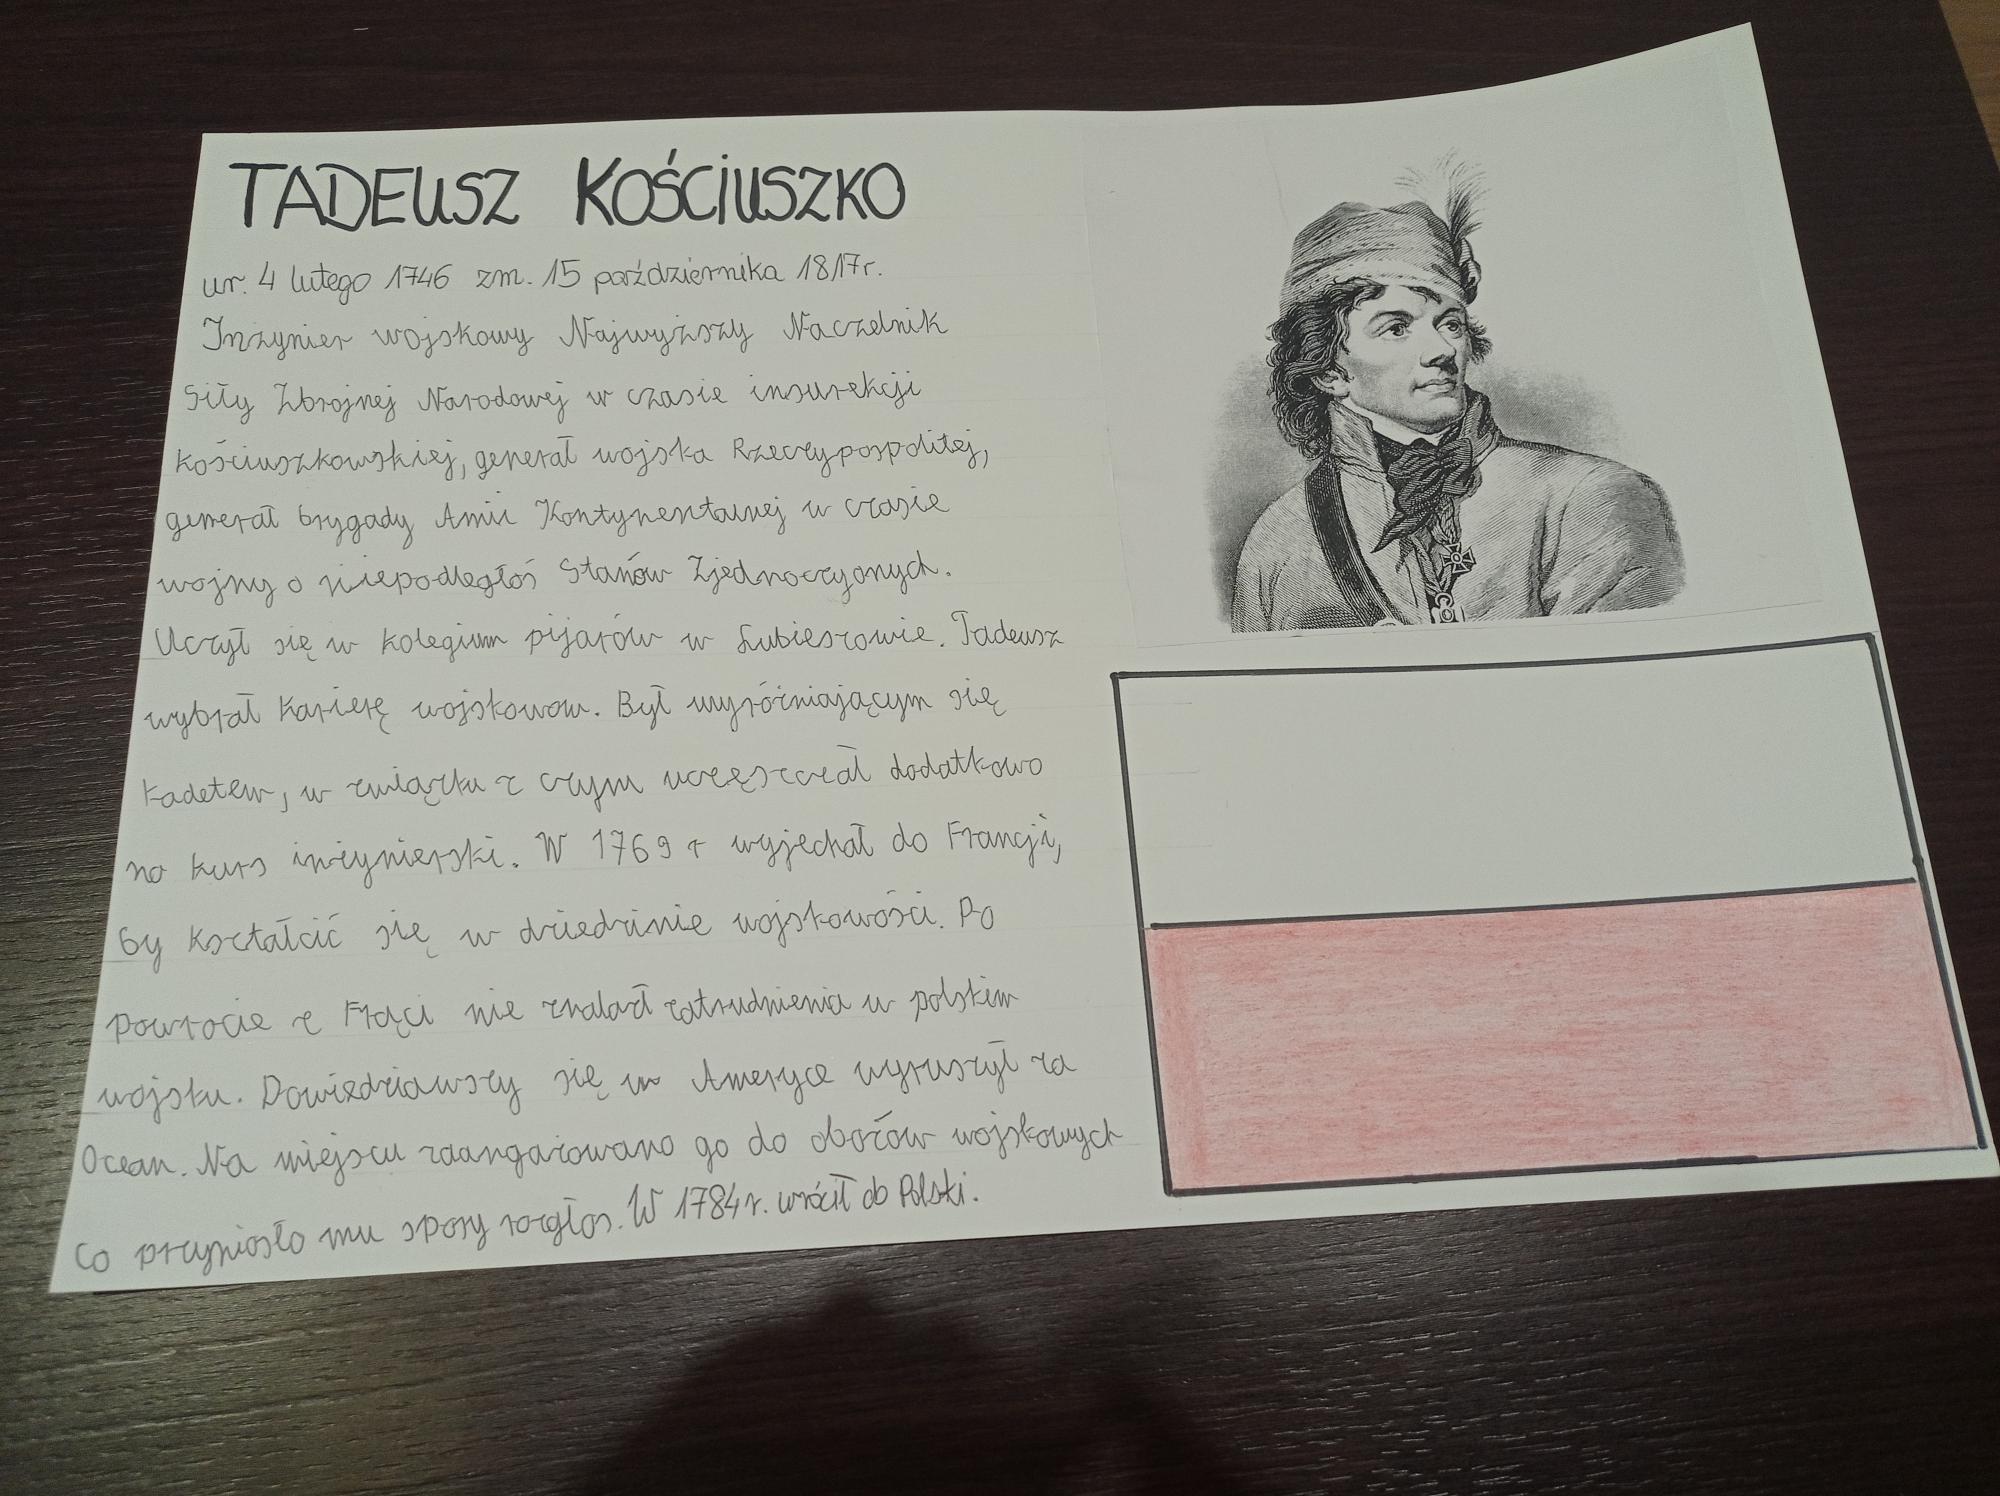 TADEUSZ KOŚCIUSZKO
ur. 4 lutego 1746 zm. 15 października 1817r.
Inżynier wojskowy Najwyższy Naczelnik
Siły Zbrojnej Narodowej w czasie insurekcji
kościuszkowskiej, generał wojska Rzeczypospolitej,
generał brygady Amii Kontynentalnej w czasie
wojny o niepodległoś Stanów Zjednoczonych.
Uczył się w kolegium pijarów w Lubieszowie. Tadeusz
wybrał karierę wojskowow. Był wyróżniającym się
kadetem, w związku z czym uczęszczał dodatkowo
na kurs inżynierski. W 1769 r wyjechał do Francji,
by kształcić się w dziedzinie wojskowości. Po
powrocie z Frąci nie znalazł zatrudnienia w polskim
wojsku. Dowiedziawszy się w Ameryce wyruszył za
Ocean. Na miejscu zaangarzowano go do obozów wojskowych
Co przyniosło mu spory rozgłos. W 1784r. wrócił do Polski.